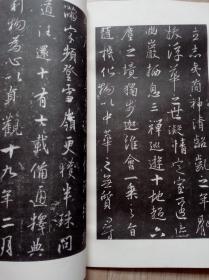 立志夷簡神清齠齔之年體
拔浮華之世凝情定室匿迹
幽巖栖息三禪巡遊十地超六
塵之境獨步迦維會一乘之旨
隨機化物以中華之無質尋
滿字頻登雪嶺更獲半珠問
道往還十有七載備通釋典
利物為心以貞觀十九年二月